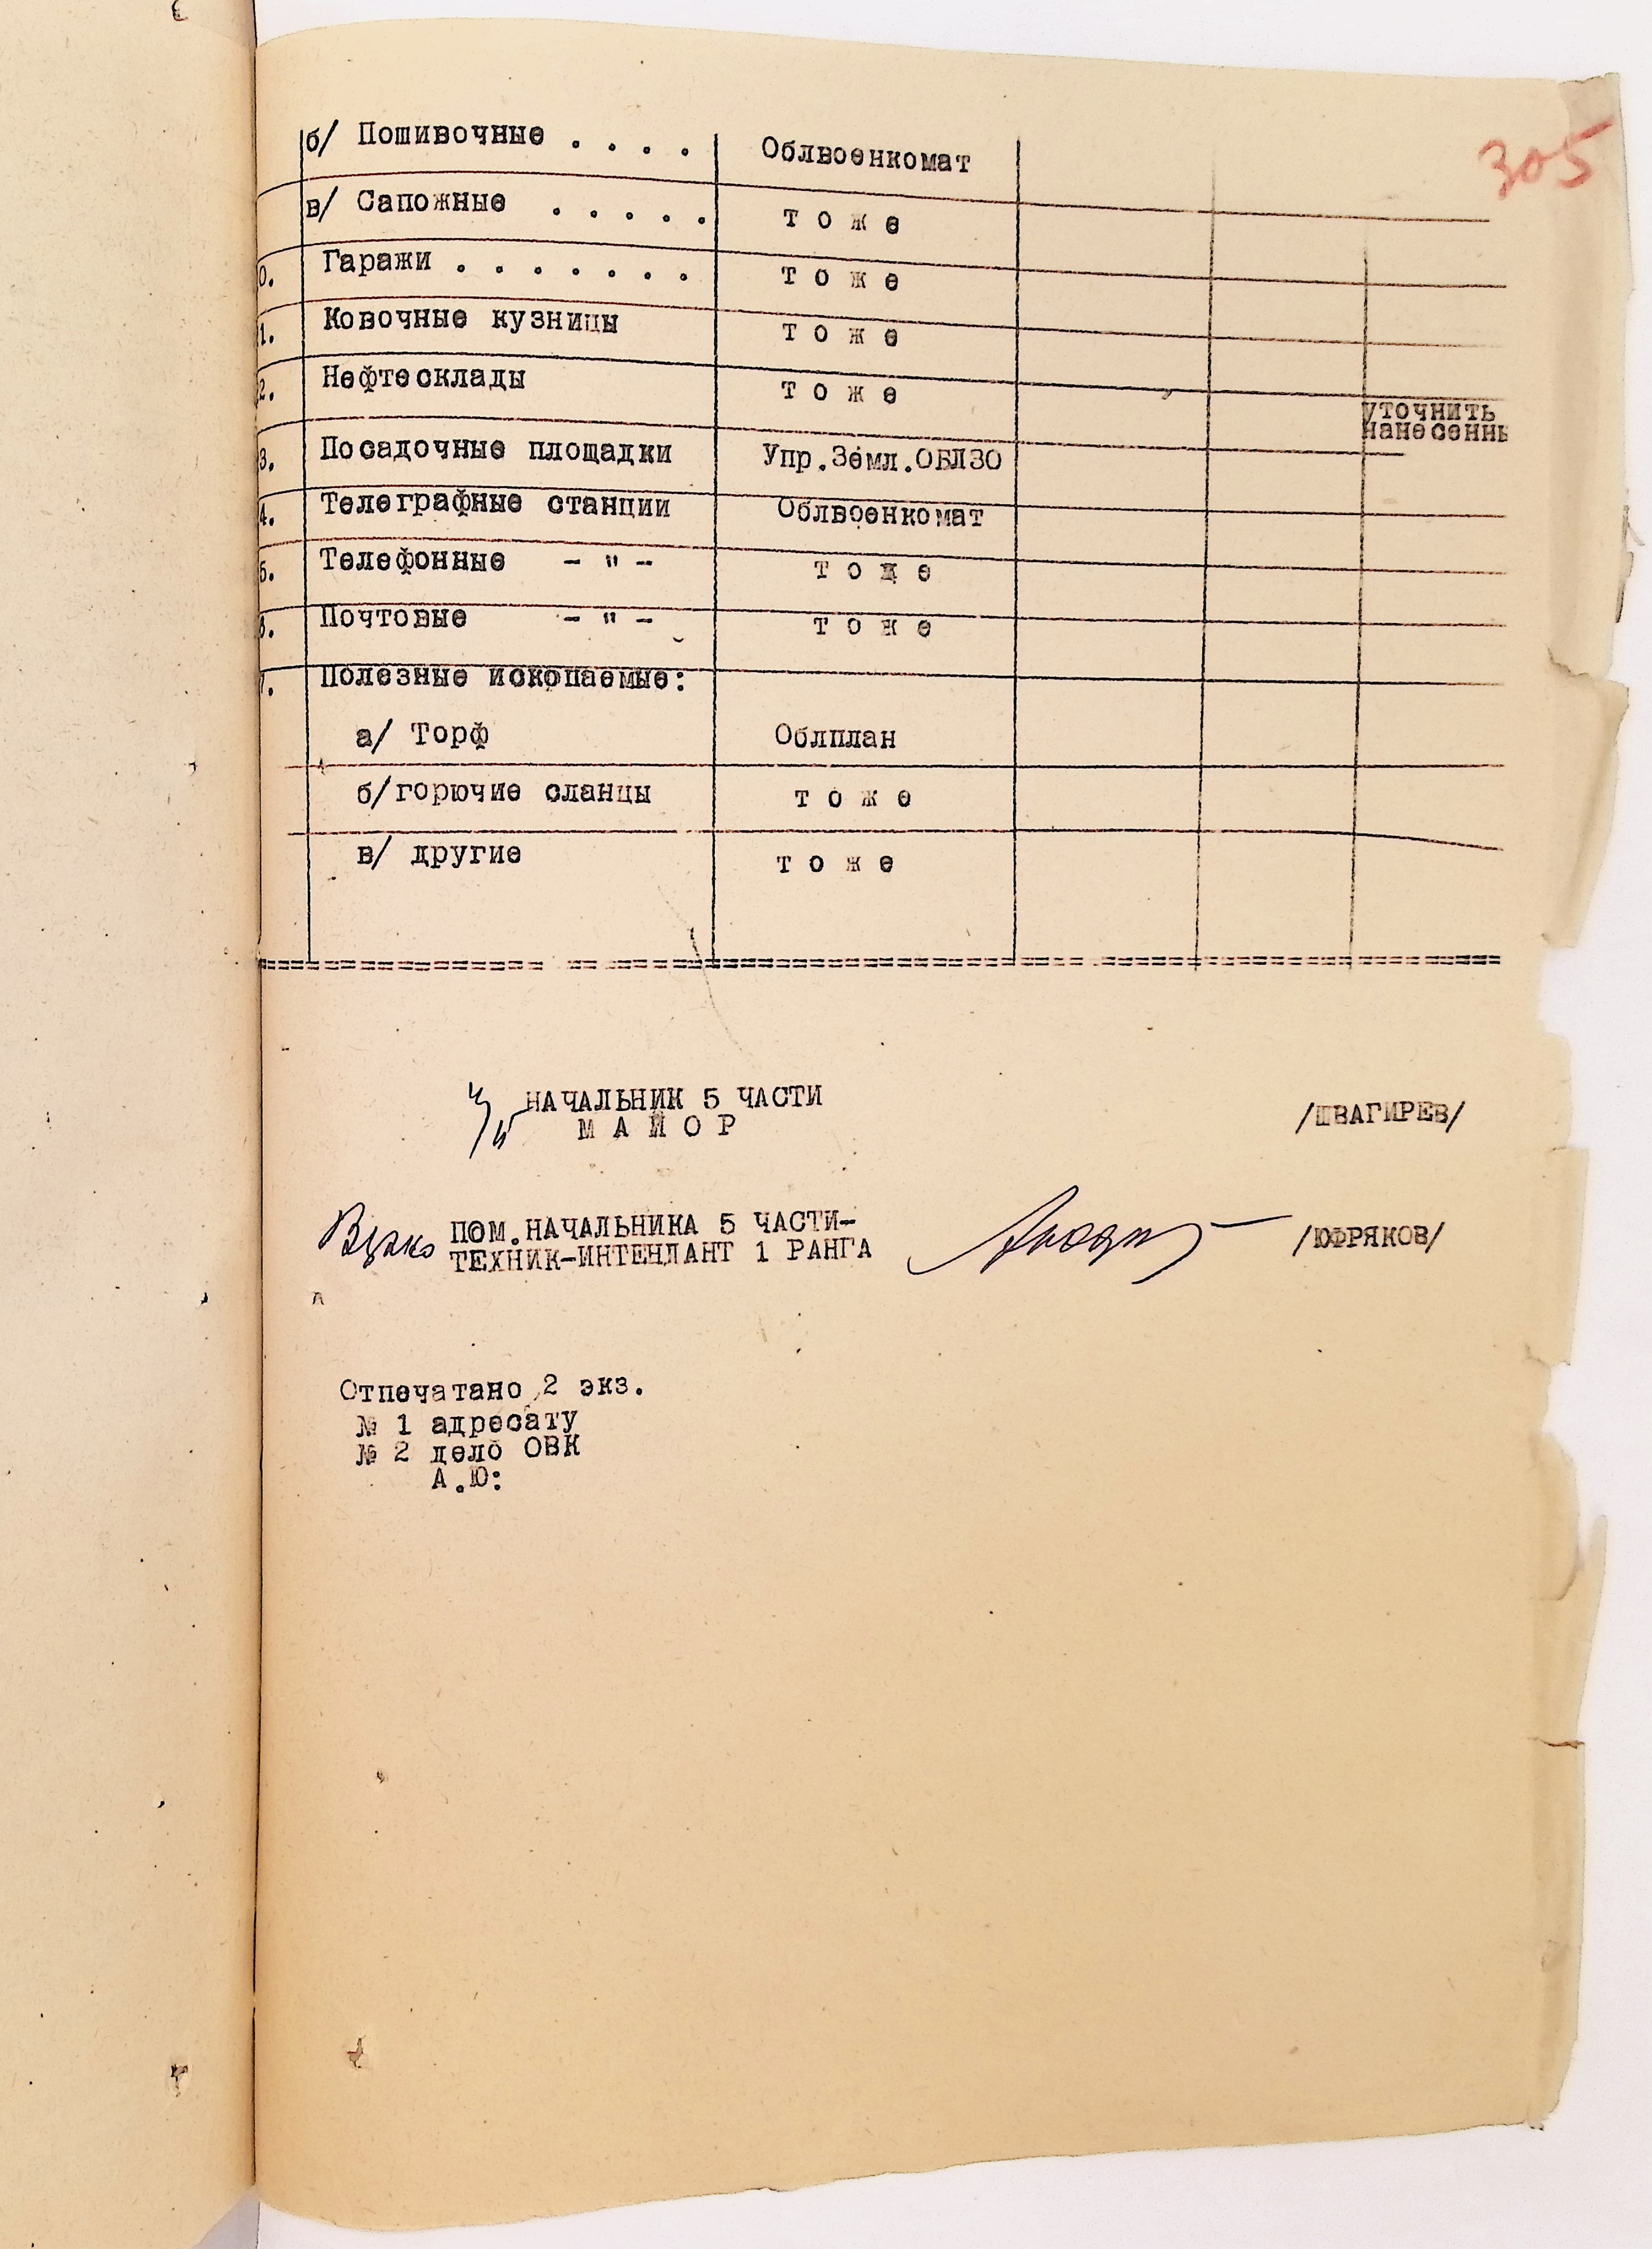 305
б/ Пошивочные . . . . Облвоенкомат
в/ Сапожные . . . . . т о ж е
0. Гаражи . . . . . . . т о ж е
1. Ковочные кузницы т о ж е
2. Нефтесклады т о ж е
уточнить
нанесенны
3. Посадочные площадки Упр.Земл.ОБЛЗО
4. Телеграфные станции Облвоенкомат
5. Телефонные - " - т о ж е
6. Почтовые - " - т о ж е
7. Полезные ископаемые:
а/ Торф Облплан
б/горючие сланцы т о ж е
в/ другие т о ж е
НАЧАЛЬНИК 5 ЧАСТИ /ШВАГИРЕВ/
М А Й О Р
ПОМ.НАЧАЛЬНИКА 5 ЧАСТИ-
ТЕХНИК-ИНТЕНДАНТ 1 РАНГА /ЮФРЯКОВ/
Отпечатано 2 экз.
№ 1 адресату
№ 2 дело ОВК
А.Ю: